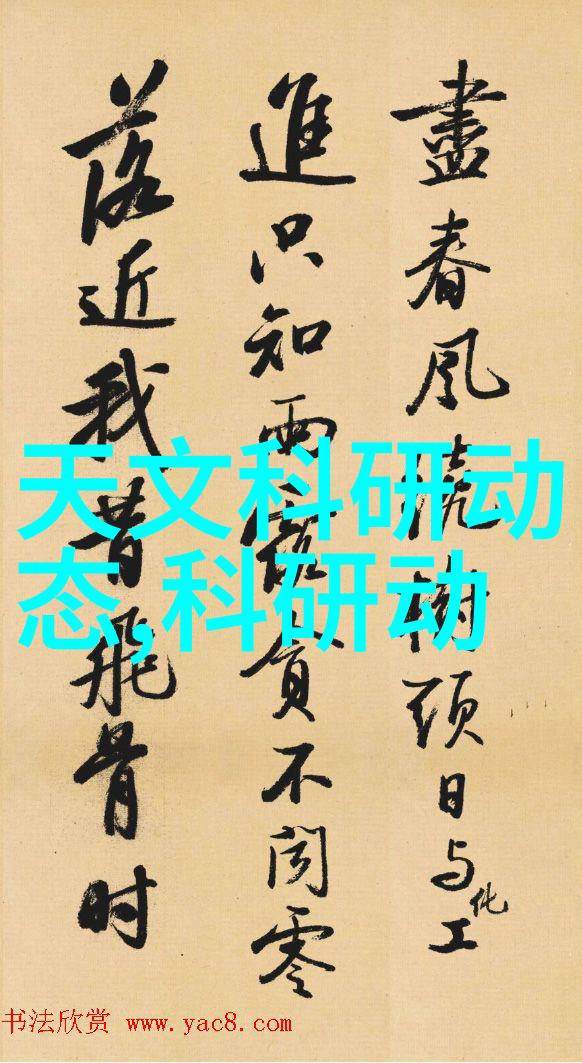 盡春風繞樹頭日与化工
進只知雨露貪不聞零
落近我昔飛骨时
天文科研动
态,科研动
书法欣赏 www.yac8.com